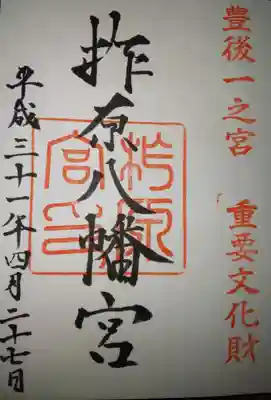 豊後一之宮 「重要文化財
柞原八幡宮
柞原宮印
平成三十一年四月二十七日